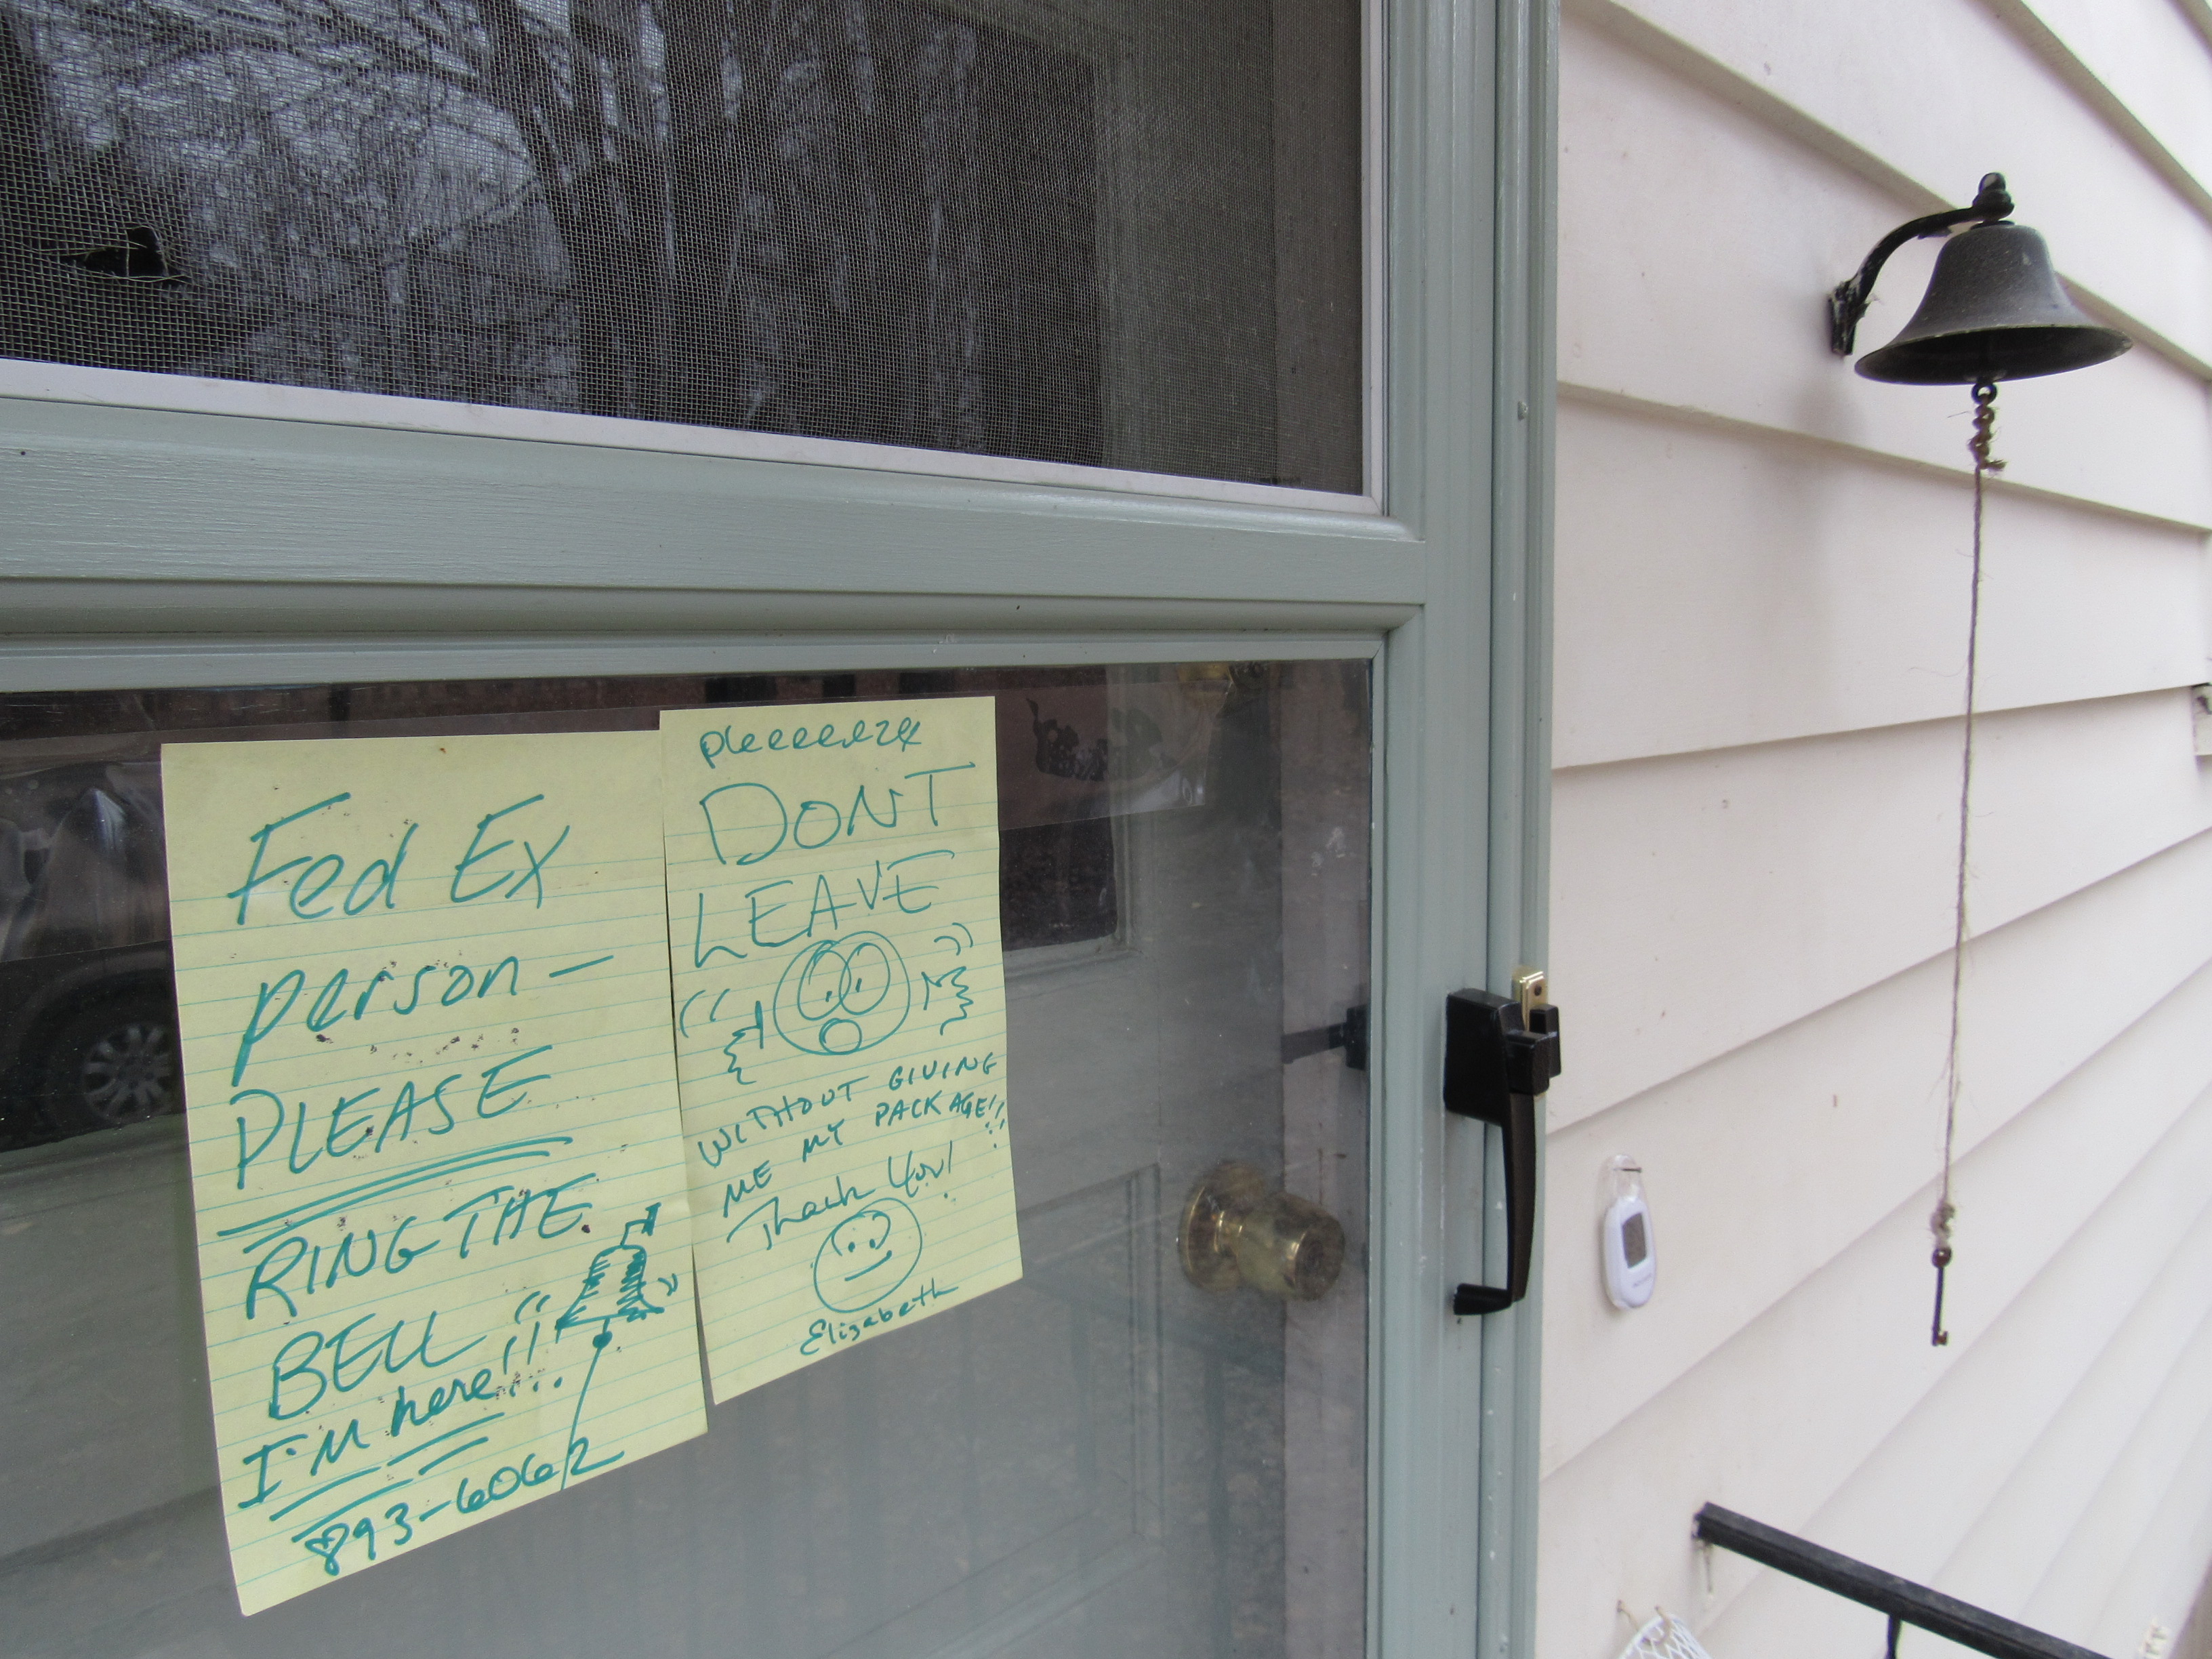 Fed Ex
person -
PLEASE
RING THE
BELL
I'm here!!
893-6062
pleeeeeze
DONT
LEAVE
WITHOUT GIVING
ME MY PACKAGE!!
Thank You!
Elizabeth